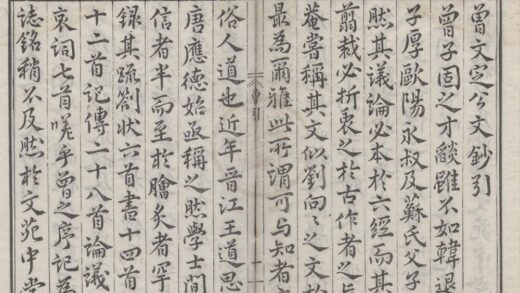 曾文定公文鈔引
曾子固之才燄雖不如韓退
子厚歐陽永叔及蘇氏父子
然其議論必本於六經而其
翦裁必折衷之於古作者之
菴嘗稱其文似劉向〻之文於
最為爾雅此所謂可与知者
曾引
俗人道也近年晉江王道思
唐應德始亟稱之然學士間
信者半而至於膾炙者罕
錄其疏劄狀六首書十四首
十二首記傳二十八首論議
哀詞七首嗟乎曾之序記為
誌銘稍不及然於文苑中當